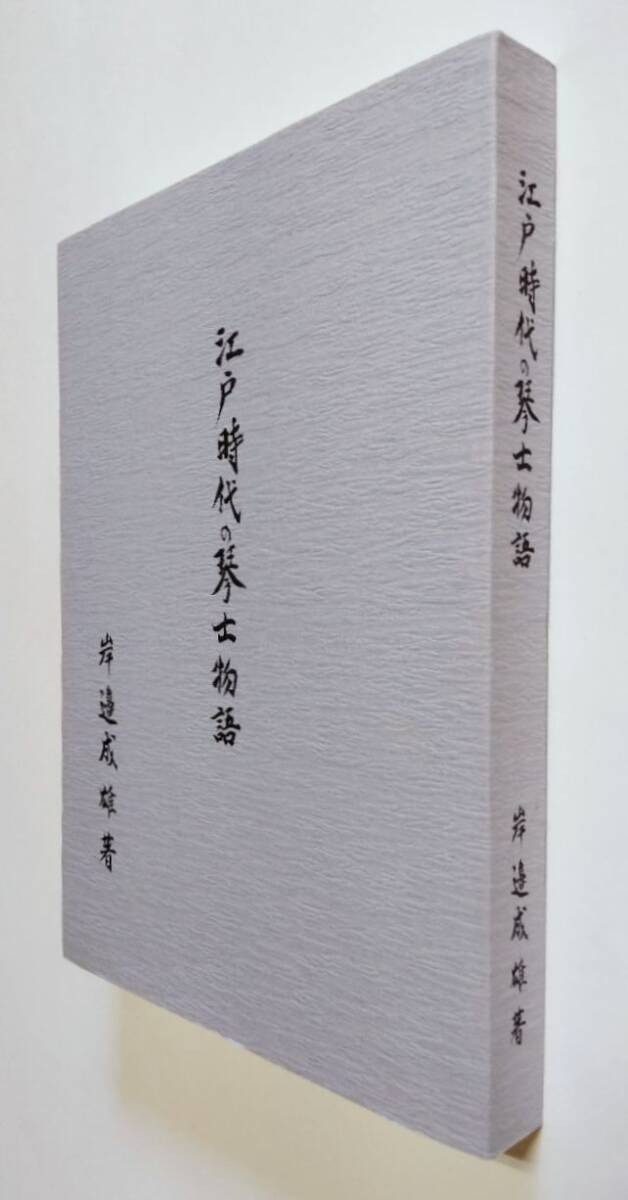 江戸時代の琴士物語
岸邉成雄著
江戸時代の琴士物語
岸邉成雄著